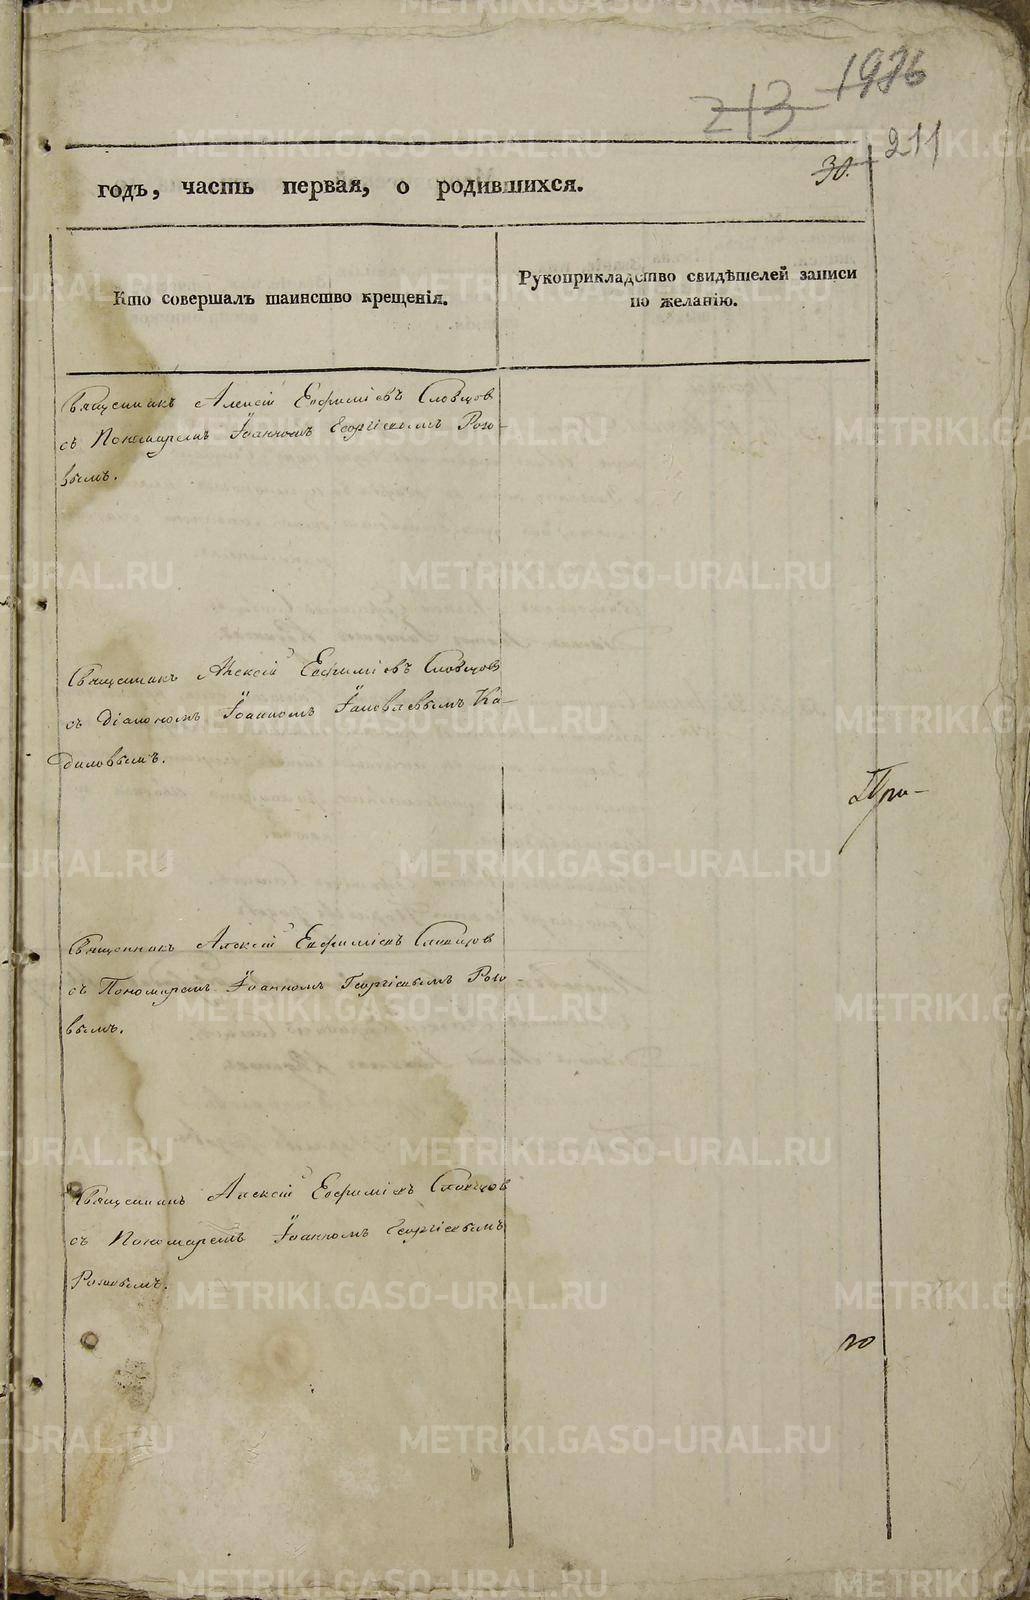 1976
213
211
30.
годъ, часть первая, о родившихся.
Кто совершалъ таинство крещенія.
Рукоприкладство свидѣтелей записи
по желанію.
Священникъ Алексій Евфиміевъ Словцов
съ Пономаремъ Іоанномъ Георгіевымъ Розо-
вымъ.
Священникъ Алексій Евфиміевъ Словцов
съ Діакономъ Іоанномъ Іаковлевымъ Ка-
диловымъ.
При-
Священникъ Алексій Евфиміевъ Словцов
съ Пономаремъ Іоанномъ Георгіевымъ Розо-
вымъ.
Священникъ Алексій Евфиміевъ Словцов
съ Пономаремъ Іоанномъ Георгіевымъ
Розовымъ.
METRIKI.GASO-URAL.RU